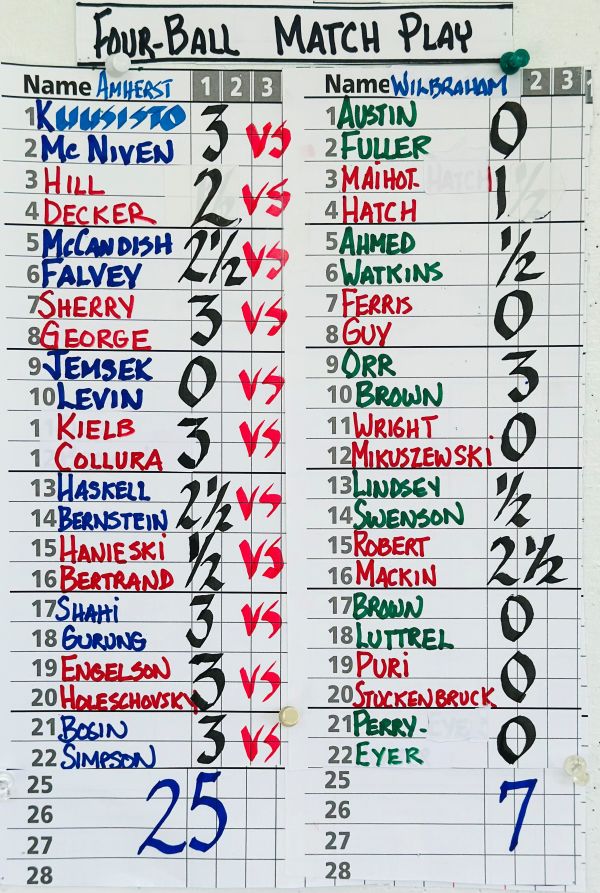 FOUR-BALL MATCH PLAY
Name AMHERST 1 2 3 Name WILBRAHAM 2 3
1 KUUSISTO 3 VS 1 AUSTIN 0
2 MCNIVEN 2 FULLER
3 HILL 2 VS 3 MAIHOT- 1
4 DECKER 4 HATCH
5 MCCANDISH 2 1/2 VS 5 AHMED 1/2
6 FALVEY 6 WATKINS
7 SHERRY 3 VS 7 FERRIS 0
8 GEORGE 8 GUY
9 JEMSEK 0 VS 9 ORR 3
10 LEVIN 10 BROWN
1 KIELB 3 VS 11 WRIGHT 0
1 COLLURA 12 MIKUSZEWSKI
13 HASKELL 2 1/2 VS 13 LINDSEY 1/2
14 BERNSTEIN 14 SWENSON
15 HANIESKI 1/2 VS 15 ROBERT 2 1/2
16 BERTRAND 16 MACKIN
17 SHAHI 3 VS 17 BROWN 0
18 GURUNG 18 LUTTREL
19 ENGELSON 3 VS 19 PURI 0
20 HOLESCHOVSKY 20 STUCKENBRUCK
21 BOSIN 3 VS 21 PERRY- 0
22 SIMPSON 22 EYER
25 25
26 25 26 7
27 27
28 28